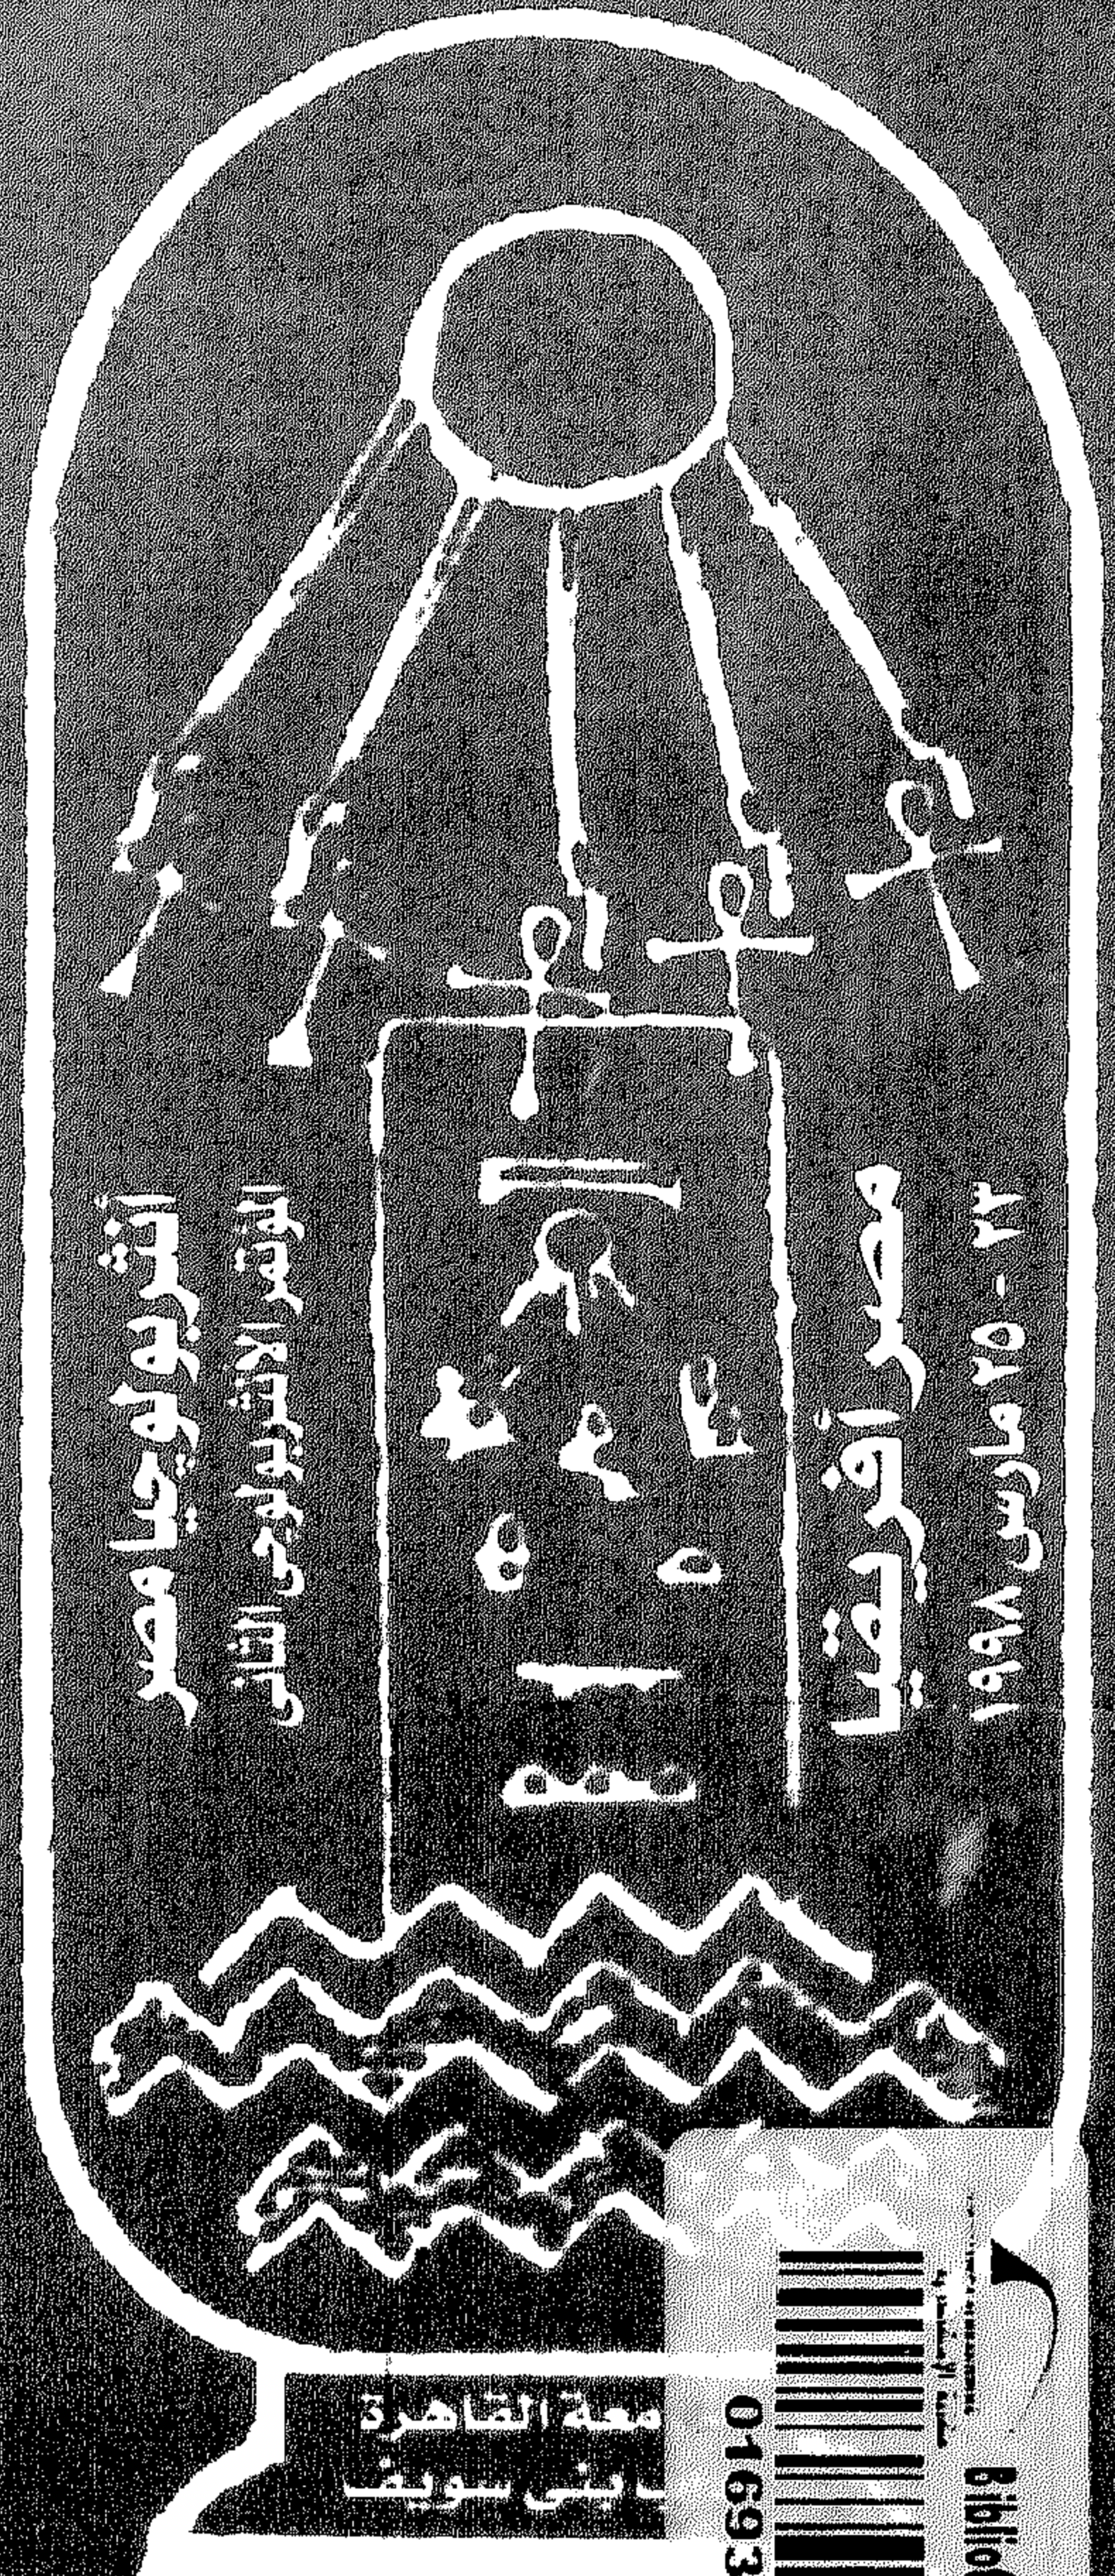 أنثربولوجيا مصر
المؤتمر الأنثربولوجى الثانى
مصر أفريقيا
٢٢ - ٢٥ مارس ١٩٩٨
معة القاهرة
بنى سويف
01693
Biblio